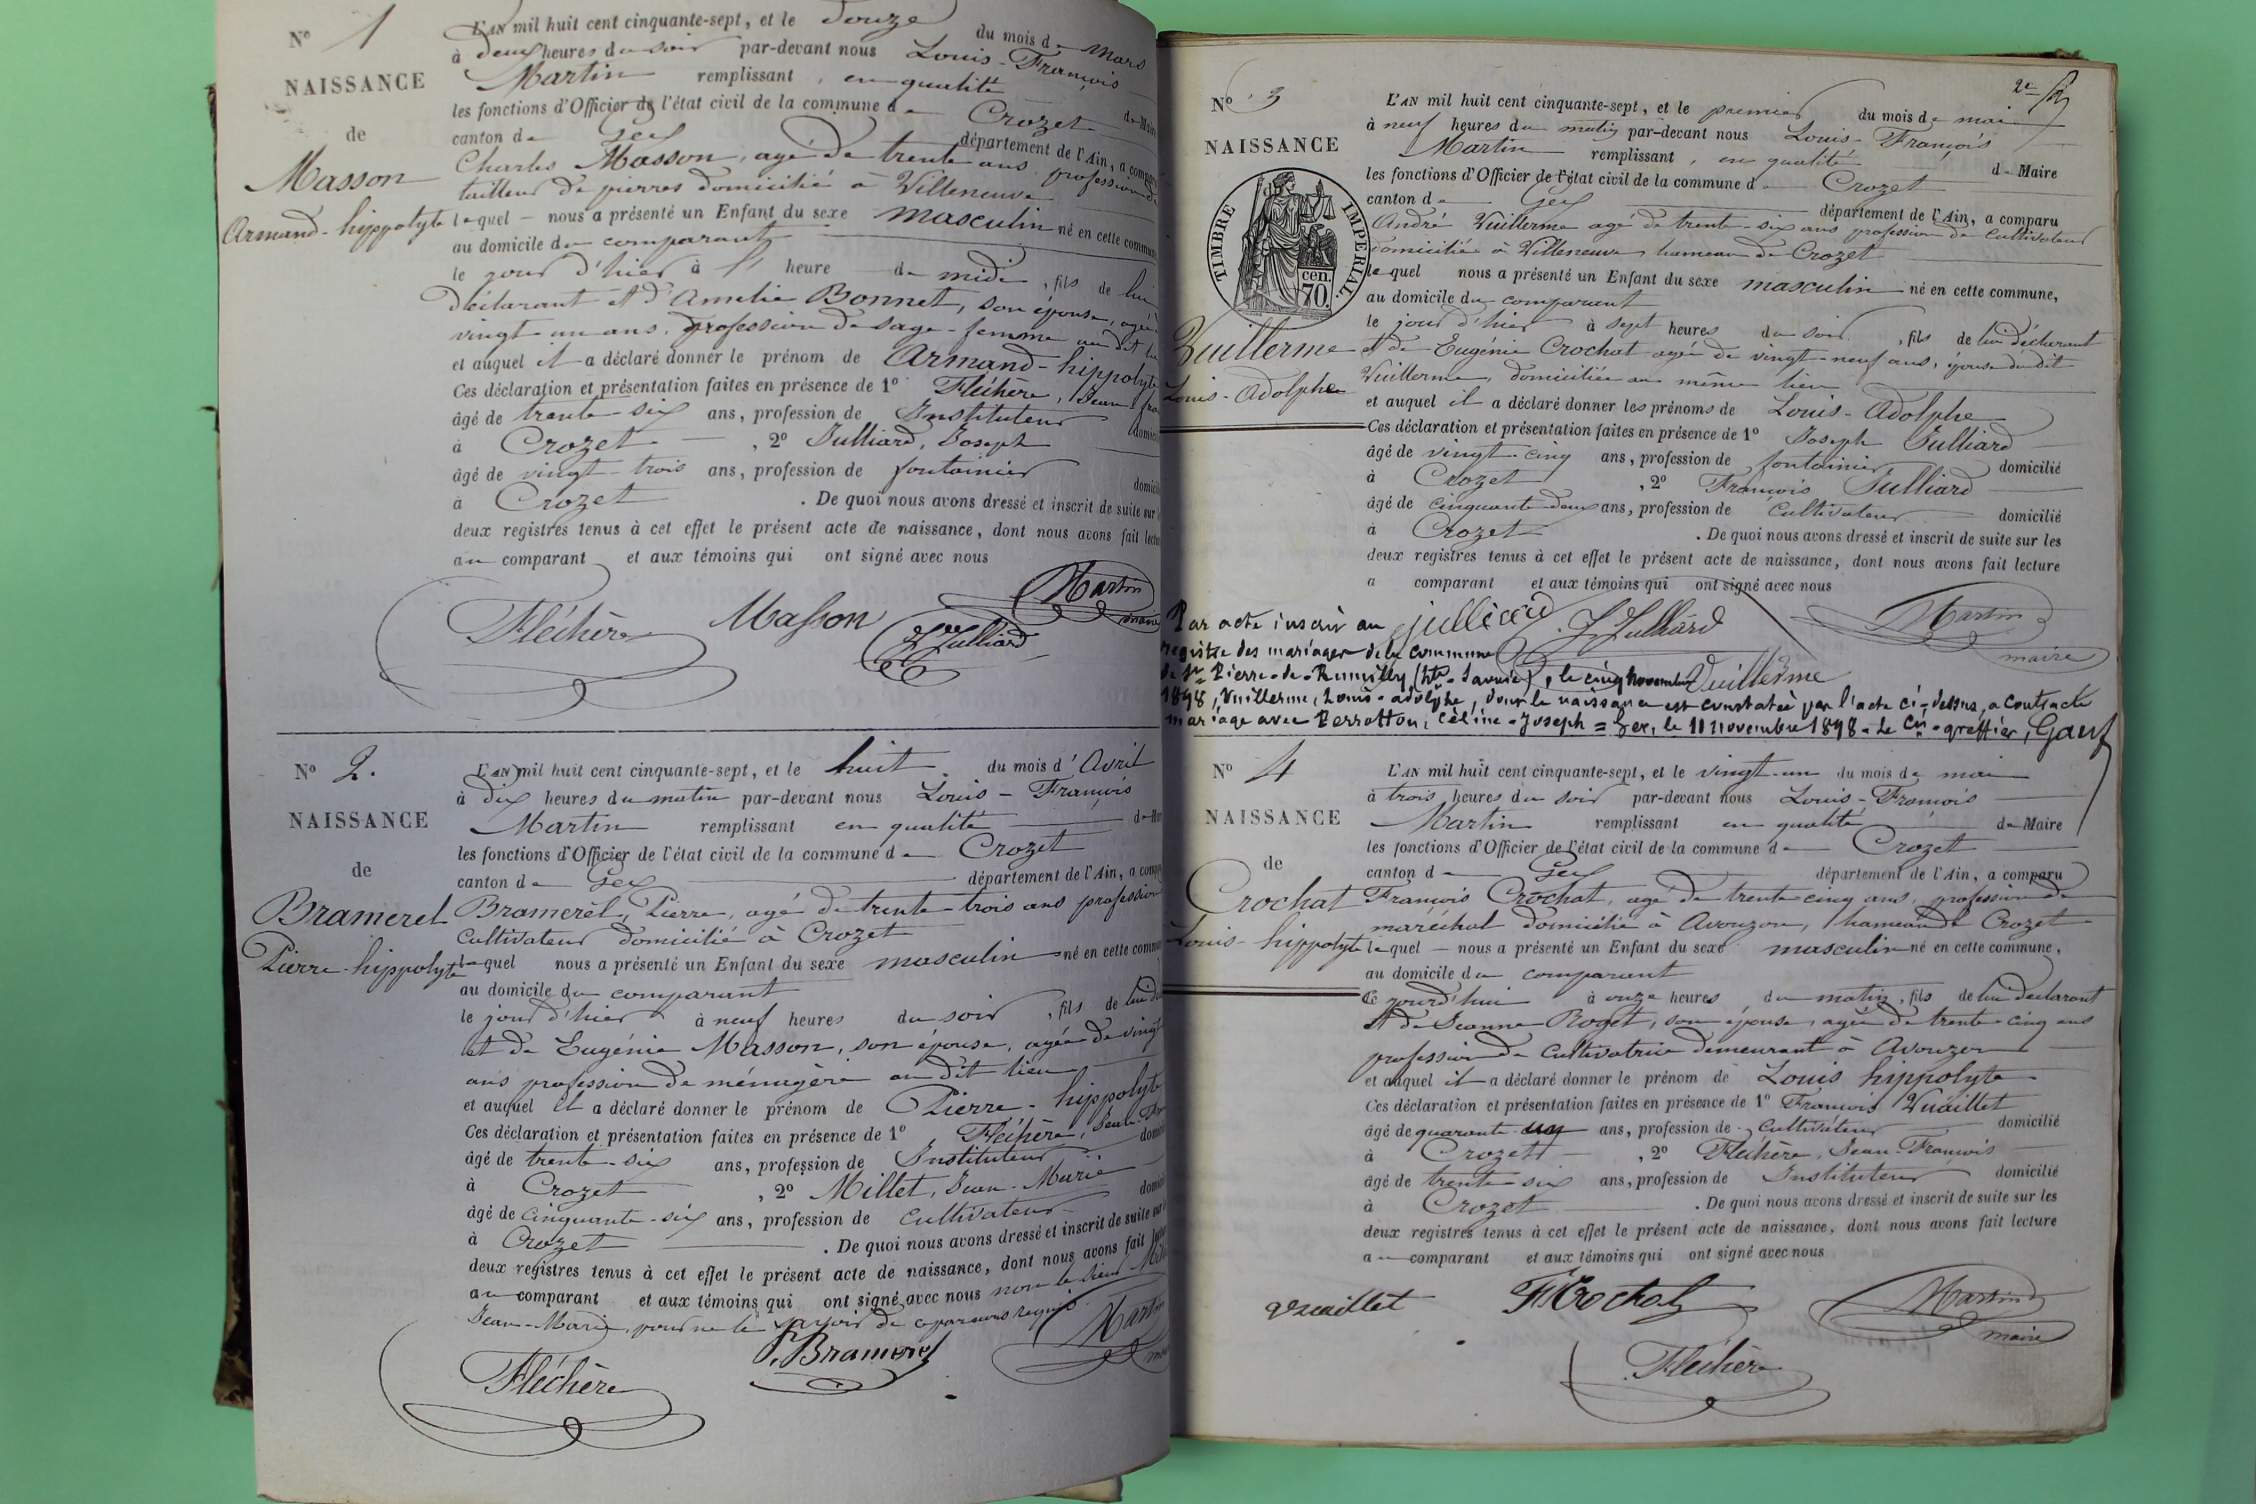 N° 1
NAISSANCE
de
Masson
Armand-hippolyte
L'AN mil huit cent cinquante-sept, et le Douze du mois de Mars
à deux heures du soir par-devant nous Louis-François
Martin remplissant, en qualité de Maire
les fonctions d'Officier de l'état civil de la commune de Crozet
canton de Gex département de l'Ain, a comparu
Charles Masson, agé de trente ans profession de
tailleur de pierres domicilié à Villeneuve
lequel nous a présenté un Enfant du sexe masculin né en cette commune
au domicile du comparant
le jour d'hier à 1 heure de midi, fils de lui
Déclarant et d'Amélie Bonnet, son épouse, agée de
vingt-un ans, profession de sage-femme au dit lieu
et auquel il a déclaré donner le prénom de Armand-hippolyte
Ces déclaration et présentation faites en présence de 1° Fléchère, Jean-fran
âgé de trente-six ans, profession de Instituteur domicilié
à Crozet, 2° Julliard, Joseph
âgé de vingt-trois ans, profession de fontainier domicilié
à Crozet. De quoi nous avons dressé et inscrit de suite sur
deux registres tenus à cet effet le présent acte de naissance, dont nous avons fait lecture
au comparant et aux témoins qui ont signé avec nous
Fléchère Masson J Julliard Martin maire
N° 2.
NAISSANCE
de
Bramerel
Pierre-hippolyte
L'AN mil huit cent cinquante-sept, et le huit du mois d'Avril
à dix heures du matin par-devant nous Louis-François
Martin remplissant en qualité de Maire
les fonctions d'Officier de l'état civil de la commune de Crozet
canton de Gex département de l'Ain, a comparu
Bramerel, Pierre, agé de trente-trois ans profession
Cultivateur domicilié à Crozet
lequel nous a présenté un Enfant du sexe masculin né en cette commune
au domicile du comparant
le jour d'hier à neuf heures du soir, fils de lui
et de Eugénie Masson, son épouse, agée de vingt
ans profession de ménagère au dit lieu
et auquel il a déclaré donner le prénom de Pierre-hippolyte
Ces déclaration et présentation faites en présence de 1° Fléchère, Jean-Fran
âgé de trente-six ans, profession de Instituteur domicilié
à Crozet, 2° Millet, Jean-Marie
âgé de cinquante-six ans, profession de cultivateur domicilié
à Crozet. De quoi nous avons dressé et inscrit de suite sur
deux registres tenus à cet effet le présent acte de naissance, dont nous avons fait lecture
au comparant et aux témoins qui ont signé avec nous non le sieur Millet
Jean-Marie, pour ne le savoir de ce par nous requis
Fléchère P. Bramerel Martin
2e
N° 3
NAISSANCE
TIMBRE IMPERIAL.
70 cen.
Vuillerme
Louis-Adolphe
L'AN mil huit cent cinquante-sept, et le premier du mois de mai
à neuf heures du matin par-devant nous Louis-François
Martin remplissant, en qualité de Maire
les fonctions d'Officier de l'état civil de la commune de Crozet
canton de Gex département de l'Ain, a comparu
André Vuillerme agé de trente-six ans profession de cultivateur
domicilié à Villeneuve, hameau de Crozet
lequel nous a présenté un Enfant du sexe masculin né en cette commune,
au domicile du comparant
le jour d'hier à sept heures du soir, fils de lui déclarant
et de Eugénie Crochat agée de vingt-neuf ans, épouse du dit
Vuillerme, domiciliée au même lieu
et auquel il a déclaré donner les prénoms de Louis-Adolphe
Ces déclaration et présentation faites en présence de 1° Joseph Julliard
âgé de vingt-cinq ans, profession de fontainier domicilié
à Crozet, 2° François Julliard
âgé de cinquante-deux ans, profession de Cultivateur domicilié
à Crozet. De quoi nous avons dressé et inscrit de suite sur les
deux registres tenus à cet effet le présent acte de naissance, dont nous avons fait lecture
a comparant et aux témoins qui ont signé avec nous
julliard J Julliard Martin maire
Vuillerme
Par acte inscrit au
registre des mariages de la commune
de St Pierre-de-Rumilly (Hte-Savoie), le cinq novembre
1898, Vuillerme, Louis-Adolphe, dont la naissance est constatée par l'acte ci-dessus, a contracté
mariage avec Perrottou, Céline-Joseph = Gex, le 11 novembre 1898 - Le Cis-greffier,
N° 4
NAISSANCE
de
Crochat
Louis-hippolyte
L'AN mil huit cent cinquante-sept, et le vingt-un du mois de mai
à trois heures du soir par-devant nous Louis-François
Martin remplissant en qualité de Maire
les fonctions d'Officier de l'état civil de la commune de Crozet
canton de Gex département de l'Ain, a comparu
François Crochat, agé de trente-cinq ans, profession de
maréchal domicilié à Avouzon, hameau de Crozet
lequel nous a présenté un Enfant du sexe masculin né en cette commune,
au domicile du comparant
Ce jourd'hui à onze heures du matin, fils de lui declarant
et de Jeanne Roget, son épouse, agée de trente-cinq ans
profession de Cultivatrice demeurant à Avouzon
et auquel il a déclaré donner le prénom de Louis hippolyte
Ces déclaration et présentation faites en présence de 1° François Vuaillet
âgé de quarante-un ans, profession de Cultivateur domicilié
à Crozet, 2° Fléchère, Jean-François
âgé de trente-six ans, profession de Instituteur domicilié
à Crozet. De quoi nous avons dressé et inscrit de suite sur les
deux registres tenus à cet effet le présent acte de naissance, dont nous avons fait lecture
au comparant et aux témoins qui ont signé avec nous
Vuaillet Crochat Martin maire
Fléchère